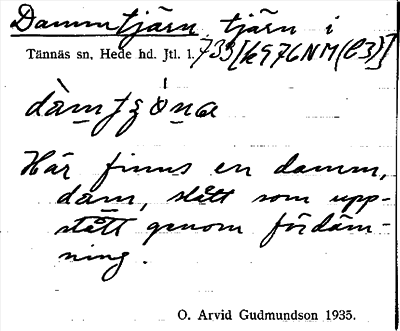 Dammtjärn, tjärn i
Tännäs sn, Hede hd. Jtl. l. 733
Här finns en damm,
dàm, slått som upp-
stått genom fördäm-
ning.
O. Arvid Gudmundson 1935.